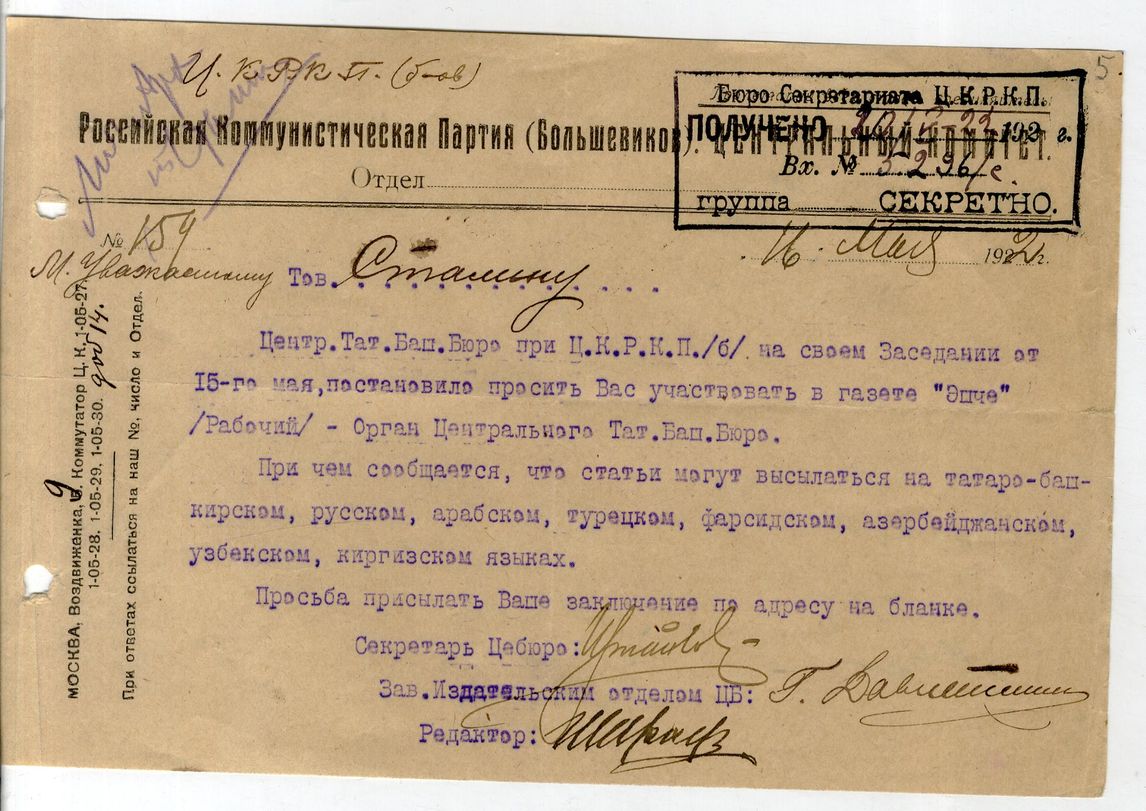 5
Ц. К. Р. К. П. (б-ов)
Бюро Секретариата Ц.К.Р.К.П.
Российская Коммунистическая Партия (Большевиков). ЦЕНТРАЛЬНЫЙ КОМИТЕТ.
ПОЛУЧЕНО 192 г.
Отдел
Вх. № 3296/с.
группа СЕКРЕТНО.
№ 159
16. Мая 1922 г.
М. Уважаемому Тов. Сталину
Центр.Тат.Баш.Бюро при Ц.К.Р.К.П./б/ на своем Заседании от
15-го мая,постановило просить Вас участвовать в газете "Эшче"
/Рабочий/ - Орган Центрального Тат.Баш.Бюро.
При чем сообщается, что статьи могут высылаться на татаро-баш-
кирском, русском, арабском, турецком, фарсидском, азербейджанском,
узбекском, киргизском языках.
Просьба присылать Ваше заключение по адресу на бланке.
Секретарь Цебюро:
Зав.Издательским отделом ЦБ:
Редактор:
МОСКВА, Воздвиженка, 9 Коммутатор Ц. К. 1-05-27,
1-05-28. 1-05-29. 1-05-30. доб 14.
При ответах ссылаться на наш №, число и Отдел.